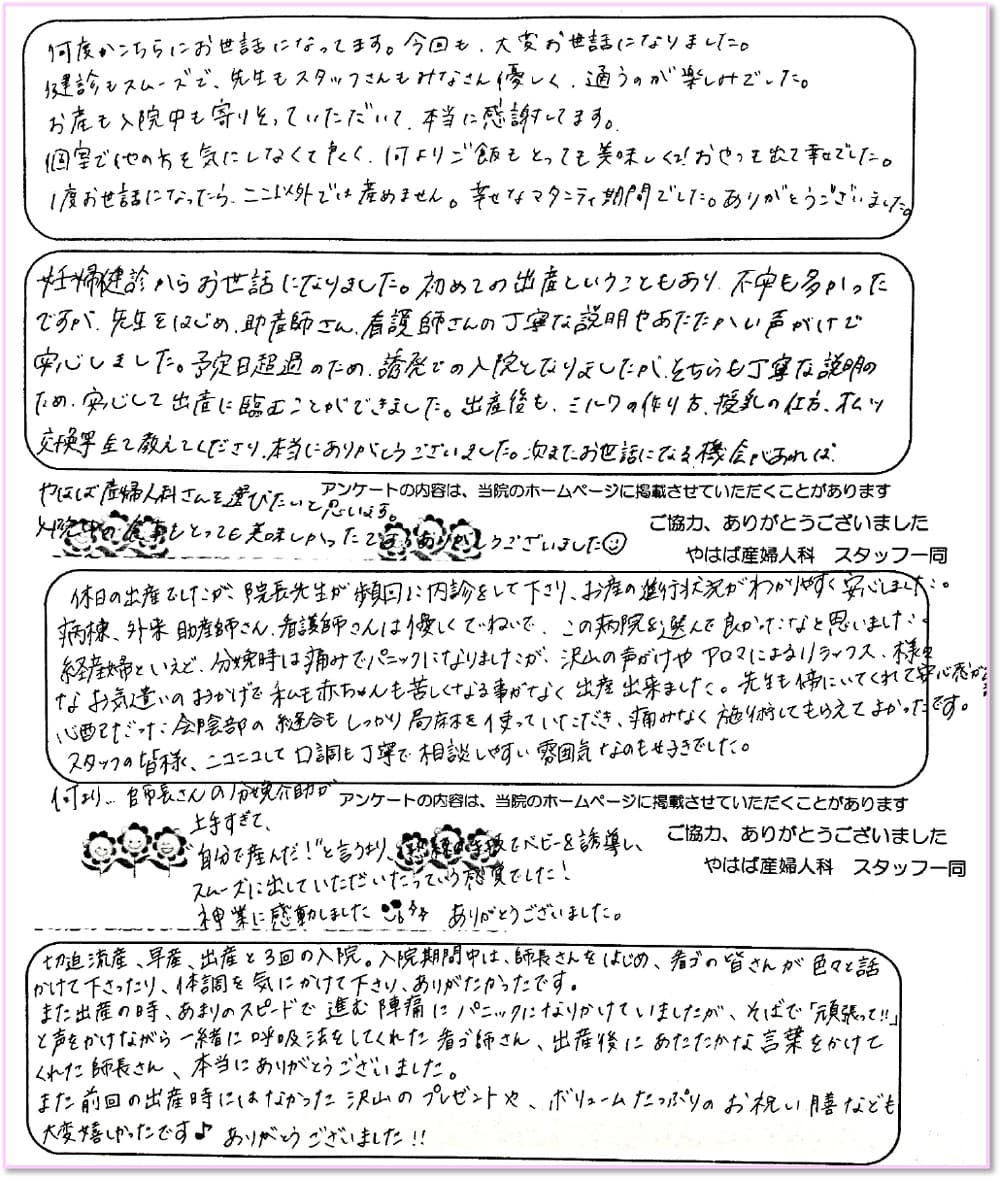 何度かこちらにお世話になってます。今回も、大変お世話になりました。
健診もスムーズで、先生もスタッフさんもみなさん優しく、通うのが楽しみでした。
お産も入院中も寄りそっていただいて、本当に感謝してます。
個室で他の方を気にしなくて良くて、何よりご飯もとっても美味しくて!おやつも出て幸せでした。
1度お世話になったら、ここ以外では産めません。幸せなマタニティ期間でした。ありがとうございました。
妊婦健診からお世話になりました。初めての出産ということもあり、不安も多かった
ですが、先生をはじめ、助産師さん、看護師さんの丁寧な説明やあたたかい声がけで
安心しました。予定日超過のため、誘発での入院となりましたが、そちらも丁寧な説明の
ため、安心して出産に臨むことができました。出産後も、ミルクの作り方、授乳の仕方、オムツ
交換等全て教えてくださり、本当にありがとうございました。次またお世話になる機会があれば
やはば産婦人科さんを選びたいと思います。
アンケートの内容は、当院のホームページに掲載させていただくことがあります
ご協力、ありがとうございました
入院中の食事もとっても美味しかったです。ありがとうございました☺
やはば産婦人科 スタッフ一同
休日の出産でしたが、院長先生が頻回に内診をして下さり、お産の進行状況がわかりやすく安心しました。
病棟、外来助産師さん、看護師さんは優しくていねいで、この病院を選んで良かったなと思いました。
経産婦といえど、分娩時は痛みでパニックになりましたが、沢山の声がけやアロマによるリラックス、様々
なお気遣いのおかげで私も赤ちゃんも苦しくなる事がなく出産出来ました。先生も傍にいてくれて安心感が
心配だった会陰部の縫合もしっかり局麻を使っていただき、痛みなく施術してもらえてよかったです。
スタッフの皆様、ニコニコして口調も丁寧で相談しやすい雰囲気なのも好きでした。
何より…師長さんの分娩介助が
アンケートの内容は、当院のホームページに掲載させていただくことがあります
上手すぎて、
ご協力、ありがとうございました
"自分で産んだ!"と言うより、熟練の手技でベビーを誘導し、
やはば産婦人科 スタッフ一同
スムーズに出していただいたっていう感覚でした!
神業に感動しました ありがとうございました。
切迫流産、早産、出産と3回の入院。入院期間中は、師長さんをはじめ、看ゴの皆さんが色々と話
かけて下さったり、体調を気にかけて下さり、ありがたかったです。
また出産の時、あまりのスピードで進む陣痛にパニックになりかけていましたが、そばで「頑張って!!」
と声をかけながら一緒に呼吸法をしてくれた看ゴ師さん、出産後にあたたかな言葉をかけて
くれた師長さん、本当にありがとうございました。
また前回の出産時にはなかった沢山のプレゼントや、ボリュームたっぷりのお祝い膳なども
大変嬉しかったです♪ ありがとうございました!!